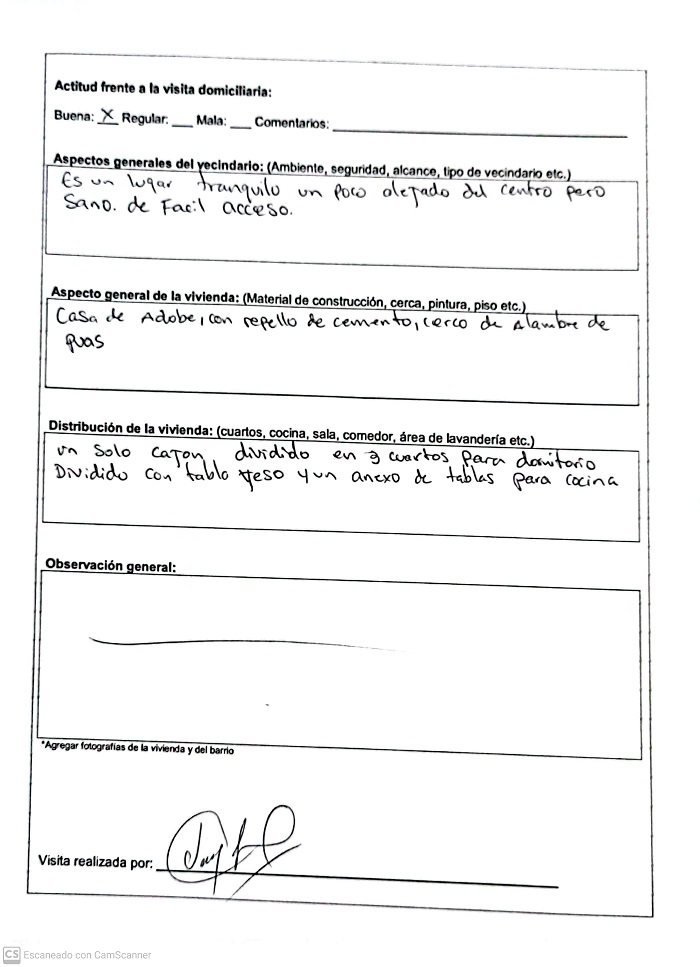 Actitud frente a la visita domiciliaria:
Buena: X Regular: ___ Mala: ___ Comentarios: ___
Aspectos generales del vecindario: (Ambiente, seguridad, alcance, tipo de vecindario etc.)
Es un lugar tranquilo un poco alejado del centro pero
sano. de Facil acceso.
Aspecto general de la vivienda: (Material de construcción, cerca, pintura, piso etc.)
Casa de Adobe, con repello de cemento, cerco de Alambre de
puas
Distribución de la vivienda: (cuartos, cocina, sala, comedor, área de lavandería etc.)
un solo cajon, dividido en 3 cuartos para domitorio
Dividido con tabla yeso y un anexo de tablas para cocina
Observación general:
*Agregar fotografías de la vivienda y del barrio
Visita realizada por:
CS Escaneado con CamScanner